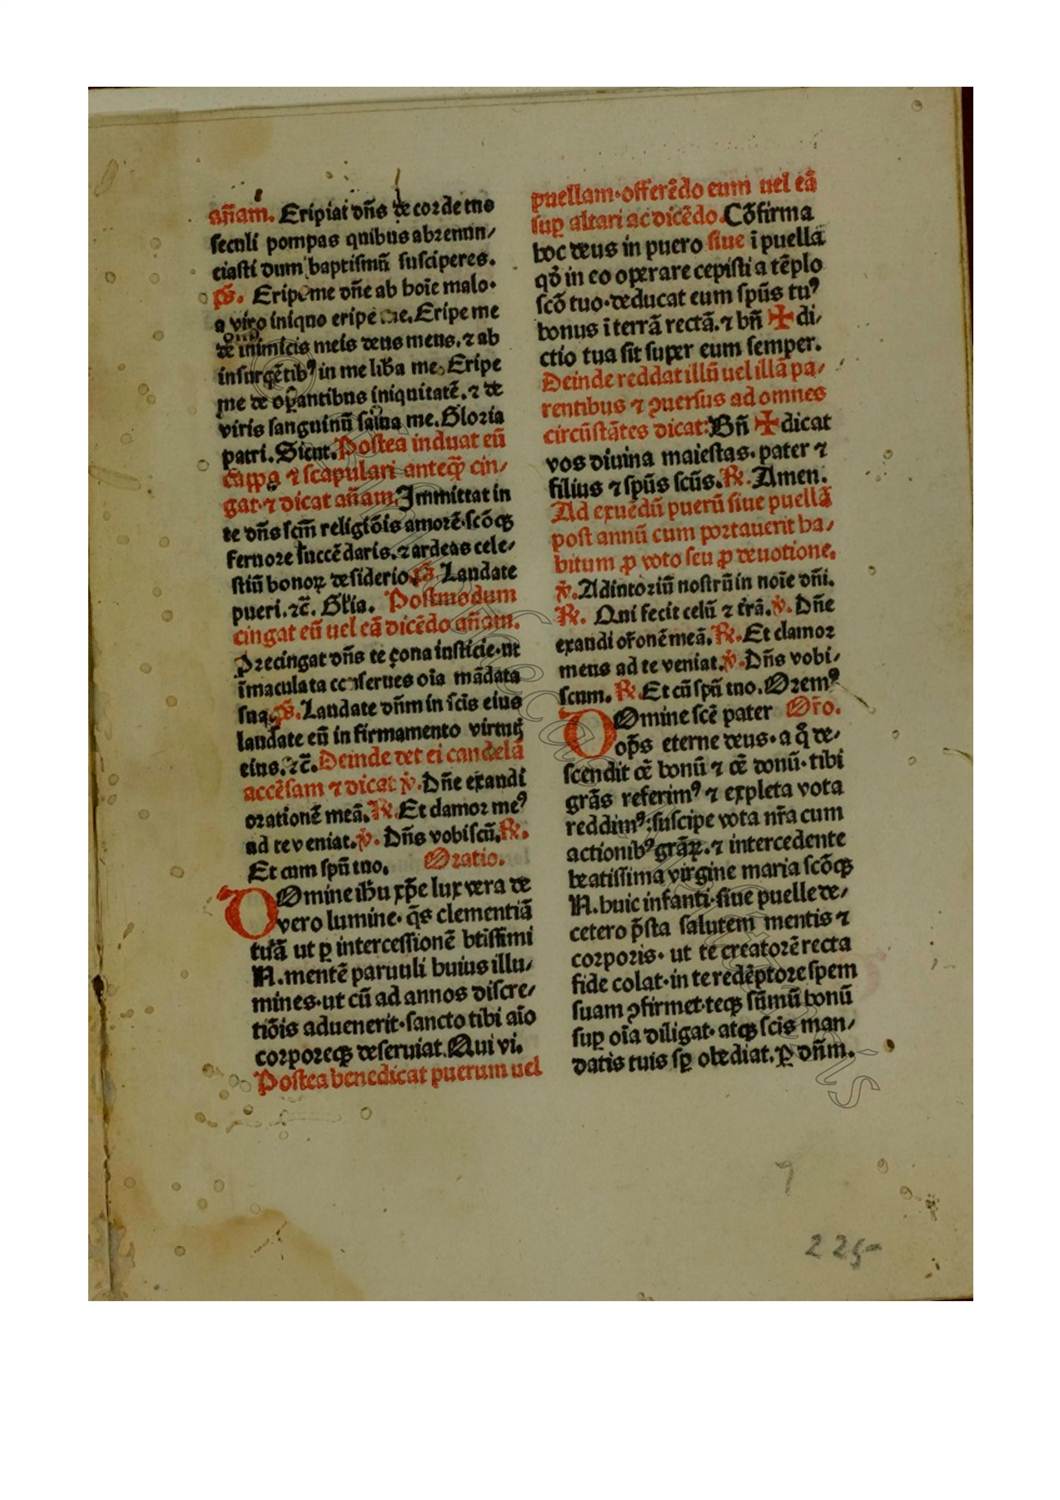 añam. Eripiat dñs de corde tuo
seculi pompas quibus abrenun/
ciasti dum baptismũ susciperes.
p̃s. Eripe me dñe ab hoĩe malo·
a viro iniquo eripe me. Eripe me
de inimicis meis deus meus. ⁊ ab
insurgẽtibꝰ in me liba me. Eripe
me de oꝑantibus iniquitatẽ. ⁊ de
viris sanguinũ salua me. Gloria
patri. Sicut. Postea induat eũ
cappa ⁊ scapulari anteq̃ cin/
gat· ⁊ dicat añam. Jmmittat in
te dñs scm̃ religiõis amorẽ· scõqꝫ
feruore succẽdaris. ⁊ ardeas cele/
stiũ bonoꝝ desiderio. p̃s. Laudate
pueri. ⁊c̃. Gl'ia. Postmodum
cingat eũ uel eã dicẽdo añam.
Precingat dñs te çona iusticie· ut
ĩmaculata conserues oĩa mãdata
sua. p̃s. Laudate dñm in scis eius
laudate eũ in firmamento virtuꝫ
eius. ⁊c̃. Deinde det ei candelã
accẽsam ⁊ dicat ℣. Dñe exaudi
orationẽ meã. ℟. Et clamor meꝰ
ad te veniat. ℣. Dñs vobiscũ. ℟.
Et cum spũ tuo. Oratio.
DOmine ihu xp̃e lux vera de
vero lumine· q̃s clementiã
tuã ut ꝑ intercessionẽ btissimi
N. mentẽ paruuli huius illu/
mines· ut cũ ad annos discre/
tiõis aduenerit· sancto tibi aĩo
corporeqꝫ deseruiat. Qui vi.
Postea benedicat puerum uel
puellam· offerẽdo eum uel eã
suꝑ altari ac dicẽdo. Cõfirma
hoc deus in puero siue ĩ puella
qđ in eo operare cepisti a tẽplo
scõ tuo· deducat eum spũs tuꝰ
bonus ĩ terrã rectã. ⁊ bñ ✠ di/
ctio tua sit super eum semper.
Deinde reddat illũ uel illã pa/
rentibus ⁊ ꝯuersus ad omnes
circũstãtes dicat: Bñ ✠ dicat
vos diuina maiestas· pater ⁊
filius ⁊ spũs scũs. ℟. Amen.
Ad exuẽdũ puerũ siue puellã
post annũ cum portauerit ha/
bitum ꝓ voto seu ꝓ deuotione.
℣. Adiutoriũ nostrũ in noĩe dñi.
℟. Qui fecit celũ ⁊ trã. ℣. Dñe
exaudi oŕonẽ meã. ℟. Et clamor
meus ad te veniat. ℣. Dñs vobi/
scum. ℟. Et cũ spũ tuo. Oremꝰ
DOmine scẽ pater Oŕo.
op̃s eterne deus· a q̊ de/
scendit oẽ bonũ ⁊ oẽ donũ· tibi
grãs referimꝰ ⁊ expleta vota
reddimꝰ: suscipe vota nŕa cum
actionibꝰ grãꝝ. ⁊ intercedente
beatissima virgine maria scõqꝫ
N. huic infanti· siue puelle de/
cetero p̃sta salutem mentis ⁊
corporis· ut te creatorẽ recta
fide colat· in te redẽptore spem
suam ꝯfirmet· teqꝫ sũmũ bonũ
suꝑ oĩa diligat· atqꝫ scis man/
datis tuis sꝑ obediat. ꝑ dñm.
7
225